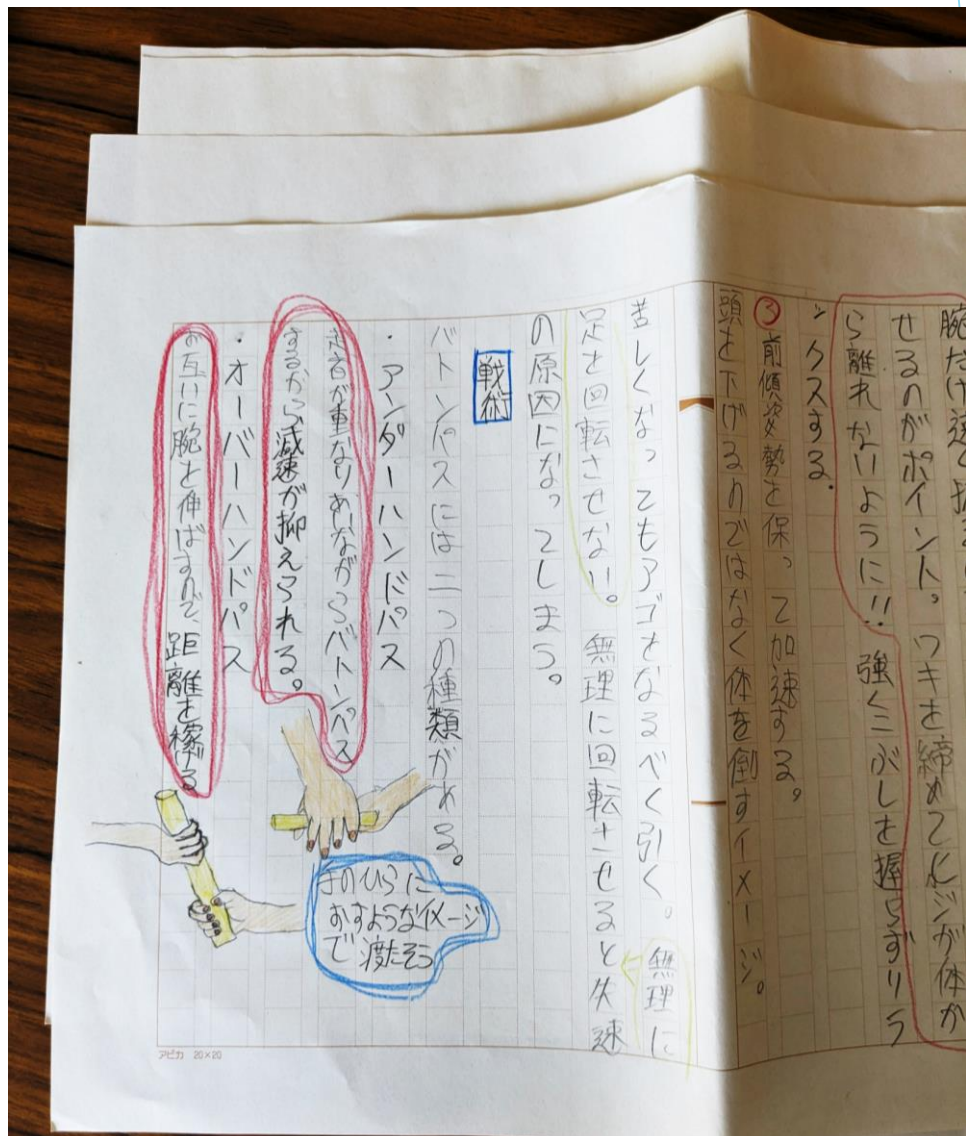 腕だけ速く振る
せるのがポイント。ワキを締めてヒジが体か
ら離れないように!!強くこぶしを握らずリラ
ックスする。
③前傾姿勢を保って加速する。
頭を下げるのではなく体を倒すイメージ。
苦しくなってもアゴをなるべく引く。無理に
足を回転させない。無理に回転させると失速
の原因になってしまう。
戦術
バトンパスには二つの種類がある。
・アンダーハンドパス
走者が重なりあいながらバトンパス
するから減速が抑えられる。
・オーバーハンドパス
お互いに腕を伸ばすので、距離を稼げる
手のひらに
おすようなイメージ
で渡たそう
アピカ 20×20